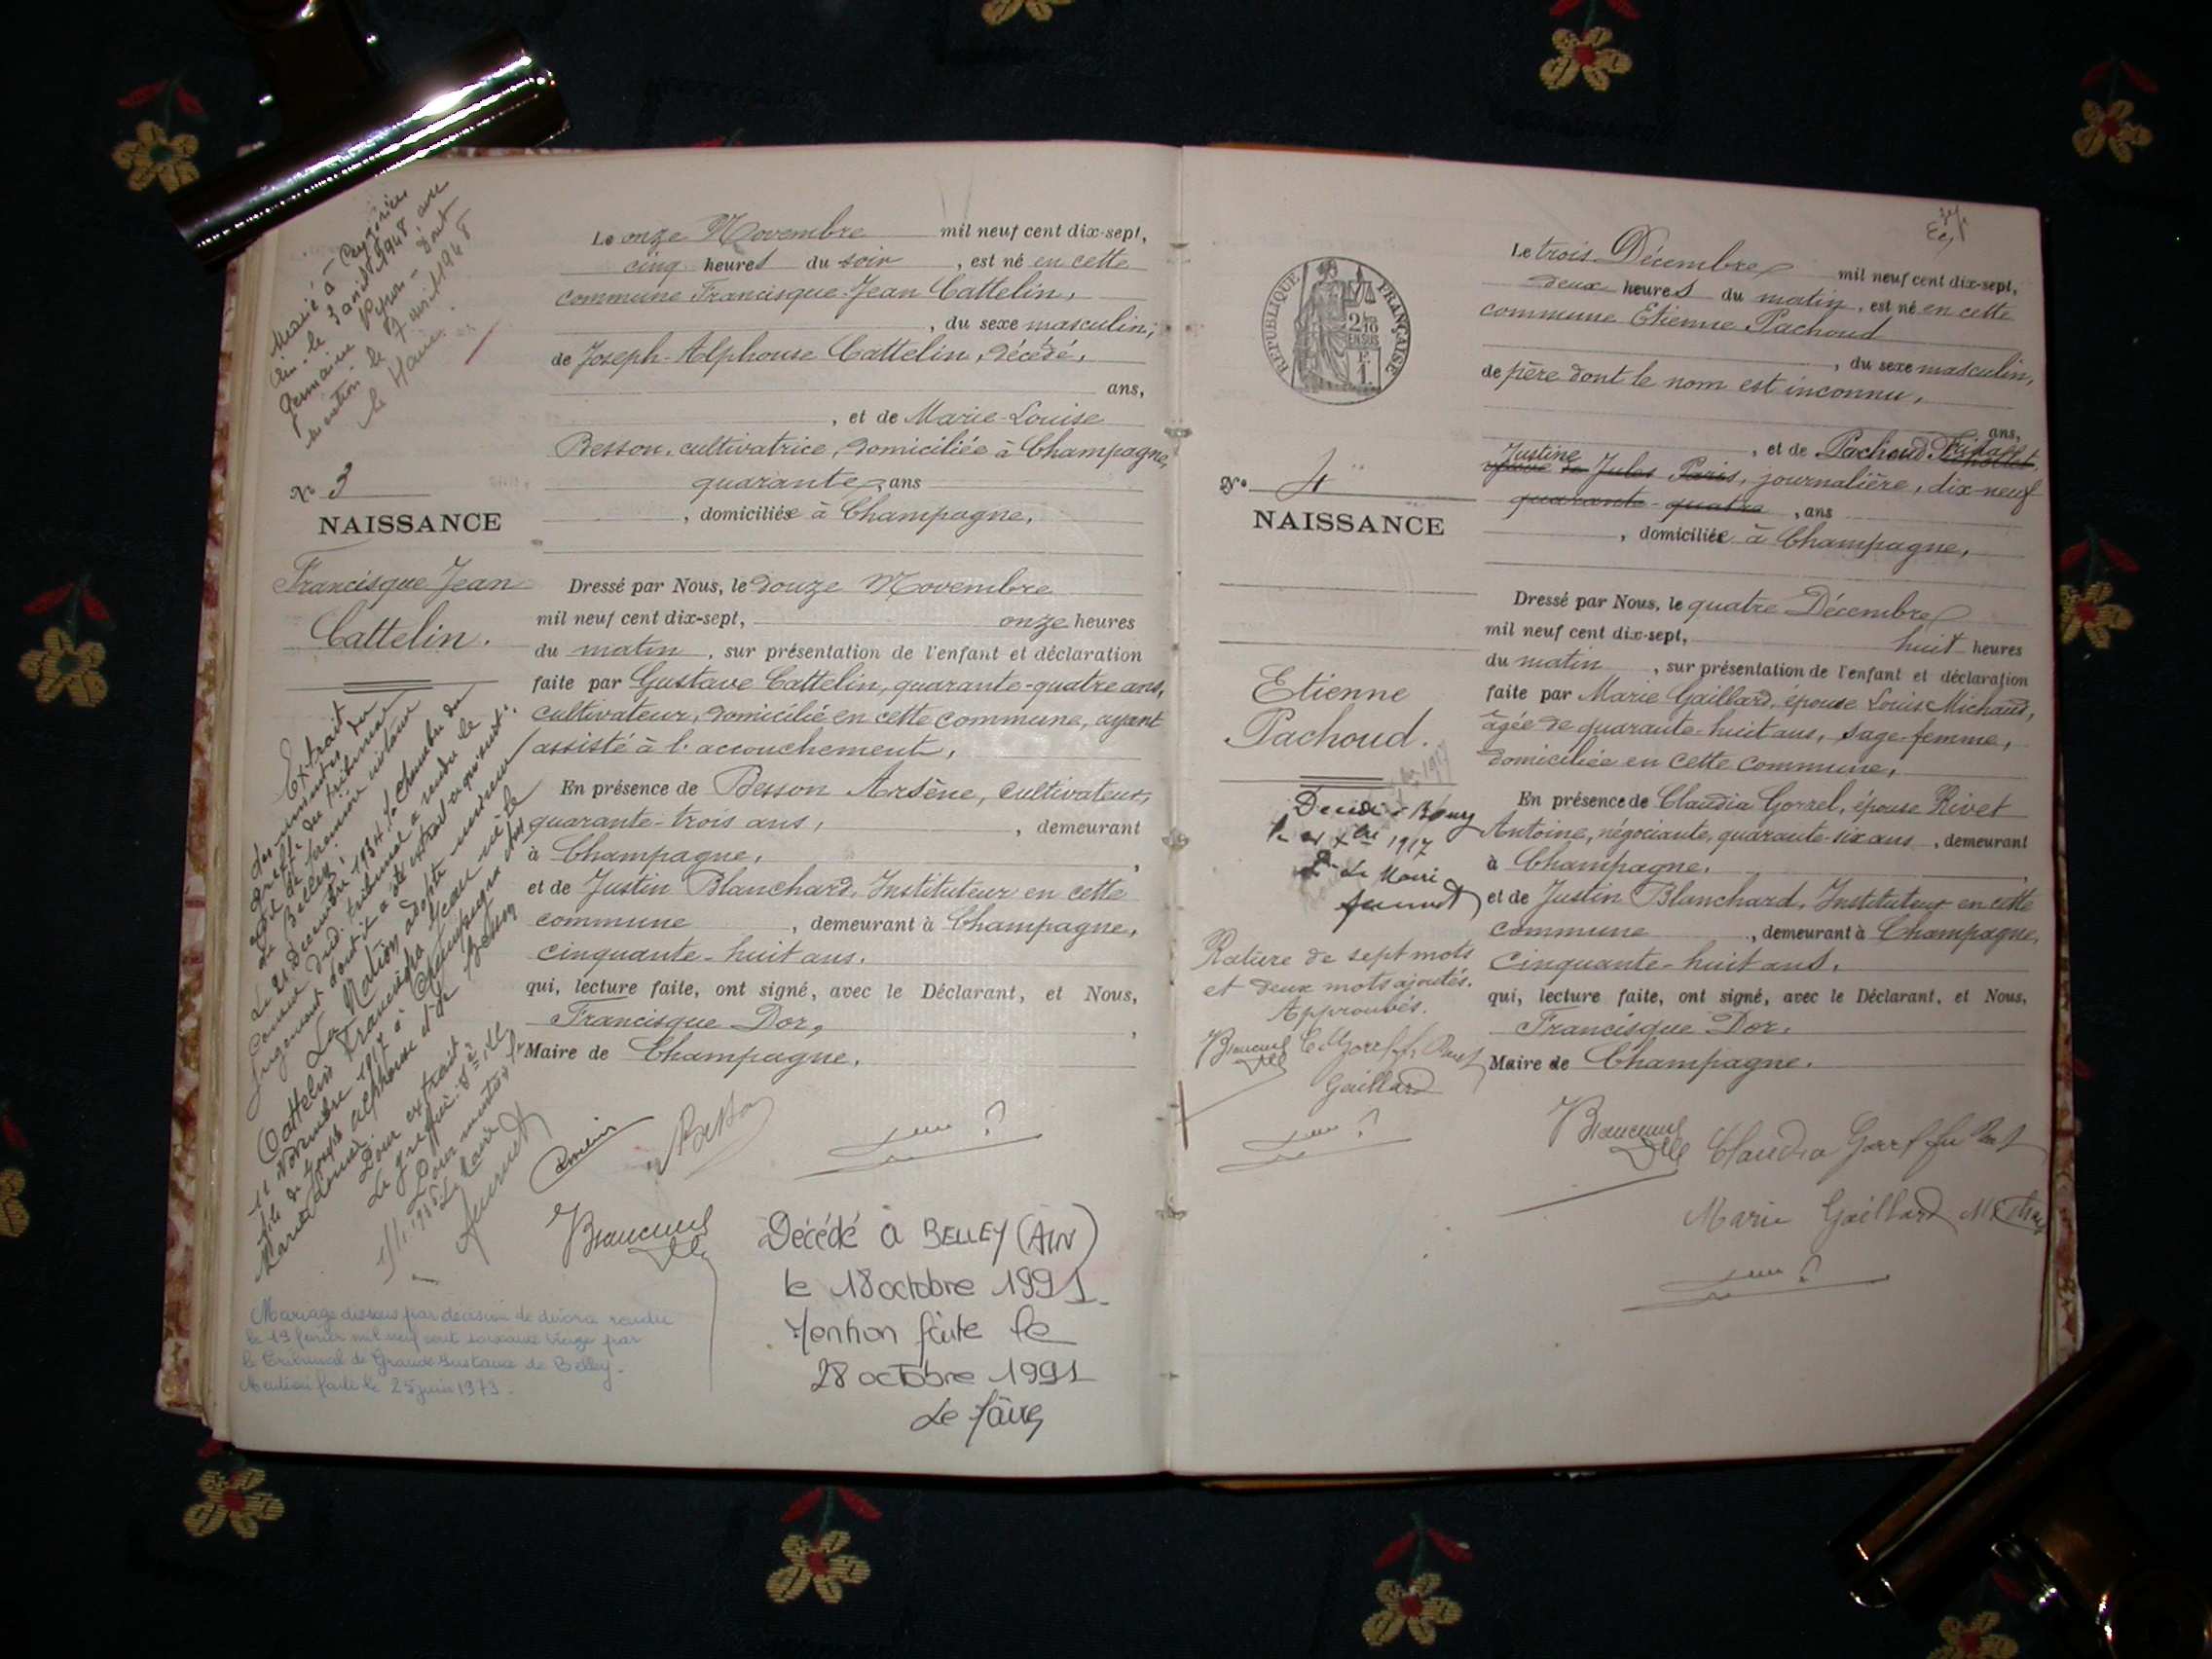 Marié à Ceyzérieu
Ain le 3 avril 1948 avec
Germaine Peyson - Dont
mention le 7 avril 1948
le Maire.
N° 3
NAISSANCE
Francisque Jean
Cattelin.
Extrait
des minutes du
greffe du tribunal
civil de première instance
de Belley,
Le 21 Décembre 1934 la chambre du
Conseil dud. tribunal a rendu le
jugement dont il a été extrait ce qui suit:
La Nation adopte mineur
Cattelin Francisque Jean né le
11 Novembre 1917 à Champagne Ain
fils de Joseph Alphonse et de Besson
Marie Louise
Pour extrait
Le greffier
Pour mention
Le Maire
Le onze Novembre mil neuf cent dix-sept,
cinq heures du soir, est né en cette
commune Francisque-Jean Cattelin,
, du sexe masculin,
de Joseph-Alphonse Cattelin, décédé,
ans,
, et de Marie-Louise
Besson, cultivatrice, domiciliée à Champagne,
quarante, ans
, domiciliée à Champagne,
Dressé par Nous, le douze Novembre
mil neuf cent dix-sept, onze heures
du matin, sur présentation de l'enfant et déclaration
faite par Gustave Cattelin, quarante-quatre ans,
cultivateur, domicilié en cette commune, ayant
assisté à l'accouchement,
En présence de Besson Arsène, cultivateur,
quarante-trois ans, , demeurant
à Champagne,
et de Justin Blanchard, Instituteur en cette
commune, demeurant à Champagne,
cinquante-huit ans.
qui, lecture faite, ont signé, avec le Déclarant, et Nous,
Francisque Dor,
Maire de Champagne.
Besson
Mariage dissous par décision de divorce rendue
le 19 février mil neuf cent soixante treize par
le Tribunal de Grande Instance de Belley.
Mention faite le 25 juin 1973.
Décédé à BELLEY (AIN)
le 18 octobre 1991
Mention faite le
28 octobre 1991
Le Maire
RÉPUBLIQUE FRANÇAISE
2/10 EN SUS
1 F.
N° 4
NAISSANCE
Etienne
Pachoud.
Décédé à Bourg
le 21 Xbre 1917
Le Maire
Rature de sept mots
et deux mots ajoutés.
Approuvés.
Gaillard
Le trois Décembre mil neuf cent dix-sept,
deux heures du matin, est né en cette
commune Etienne Pachoud
, du sexe masculin,
de père dont le nom est inconnu,
ans,
, et de Pachoud
Justine
veuve de Jules Paris, journalière, dix-neuf
quarante-quatre, ans
, domiciliée à Champagne,
Dressé par Nous, le quatre Décembre
mil neuf cent dix-sept, huit heures
du matin, sur présentation de l'enfant et déclaration
faite par Marie Gaillard, épouse Louis Michaud,
âgée de quarante-huit ans, sage-femme,
domiciliée en cette commune,
En présence de Claudia Gorrel, épouse Rivet
Antoine, négociante, quarante-six ans, demeurant
à Champagne,
et de Justin Blanchard, Instituteur en cette
commune, demeurant à Champagne,
cinquante-huit ans.
qui, lecture faite, ont signé, avec le Déclarant, et Nous,
Francisque Dor,
Maire de Champagne.
Claudia
Marie Gaillard